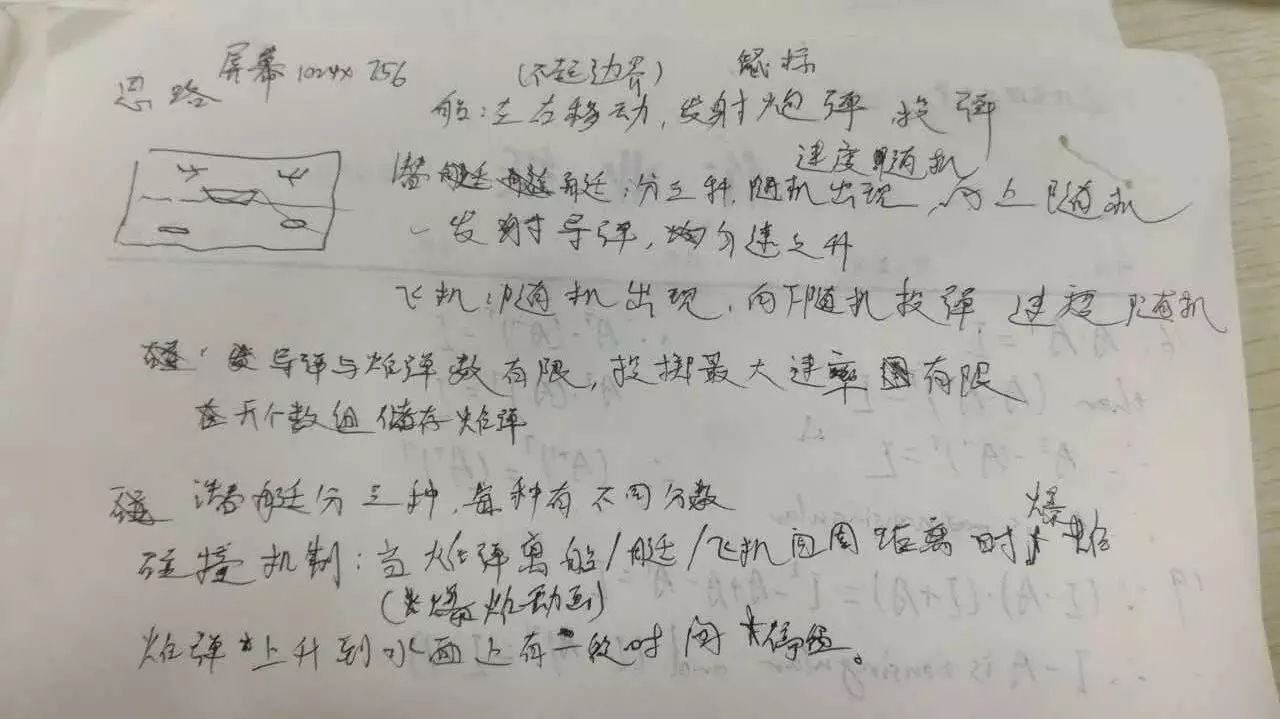 思路 屏幕1024×756 (不超边界) 鼠标
船:左右移动,发射炮弹 投弹
速度随机
潜艇:分三种,随机出现,向上随机
发射导弹,匀速上升
飞机:随机出现,向下随机投弹 速度随机
导弹与炸弹数有限,投掷最大速率有限
开个数组储存炸弹
潜艇分三种,每种有不同分数
碰撞机制:当炸弹离船/艇/飞机 距离时爆炸
(爆炸动画)
炸弹上升到水面上有一段时间停留。